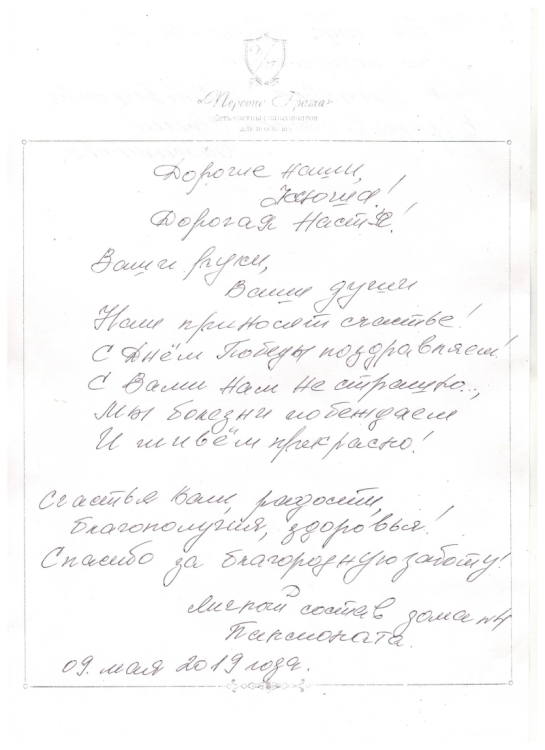 «Персона Грата»
Сеть частных пансионатов
для пожилых
Дорогие наши,
Ксюша!
Дорогая Настя!
Ваши руки,
Ваши души
Нам приносят счастье!
С Днём Победы поздравляем!
С Вами нам не страшно...,
Мы болезни побеждаем
И живём прекрасно!
Счастья Вам, радости,
благополучия, здоровья!
Спасибо за благородную заботу!
Личный состав дома №4
Пансионата.
09. мая 2019 года.